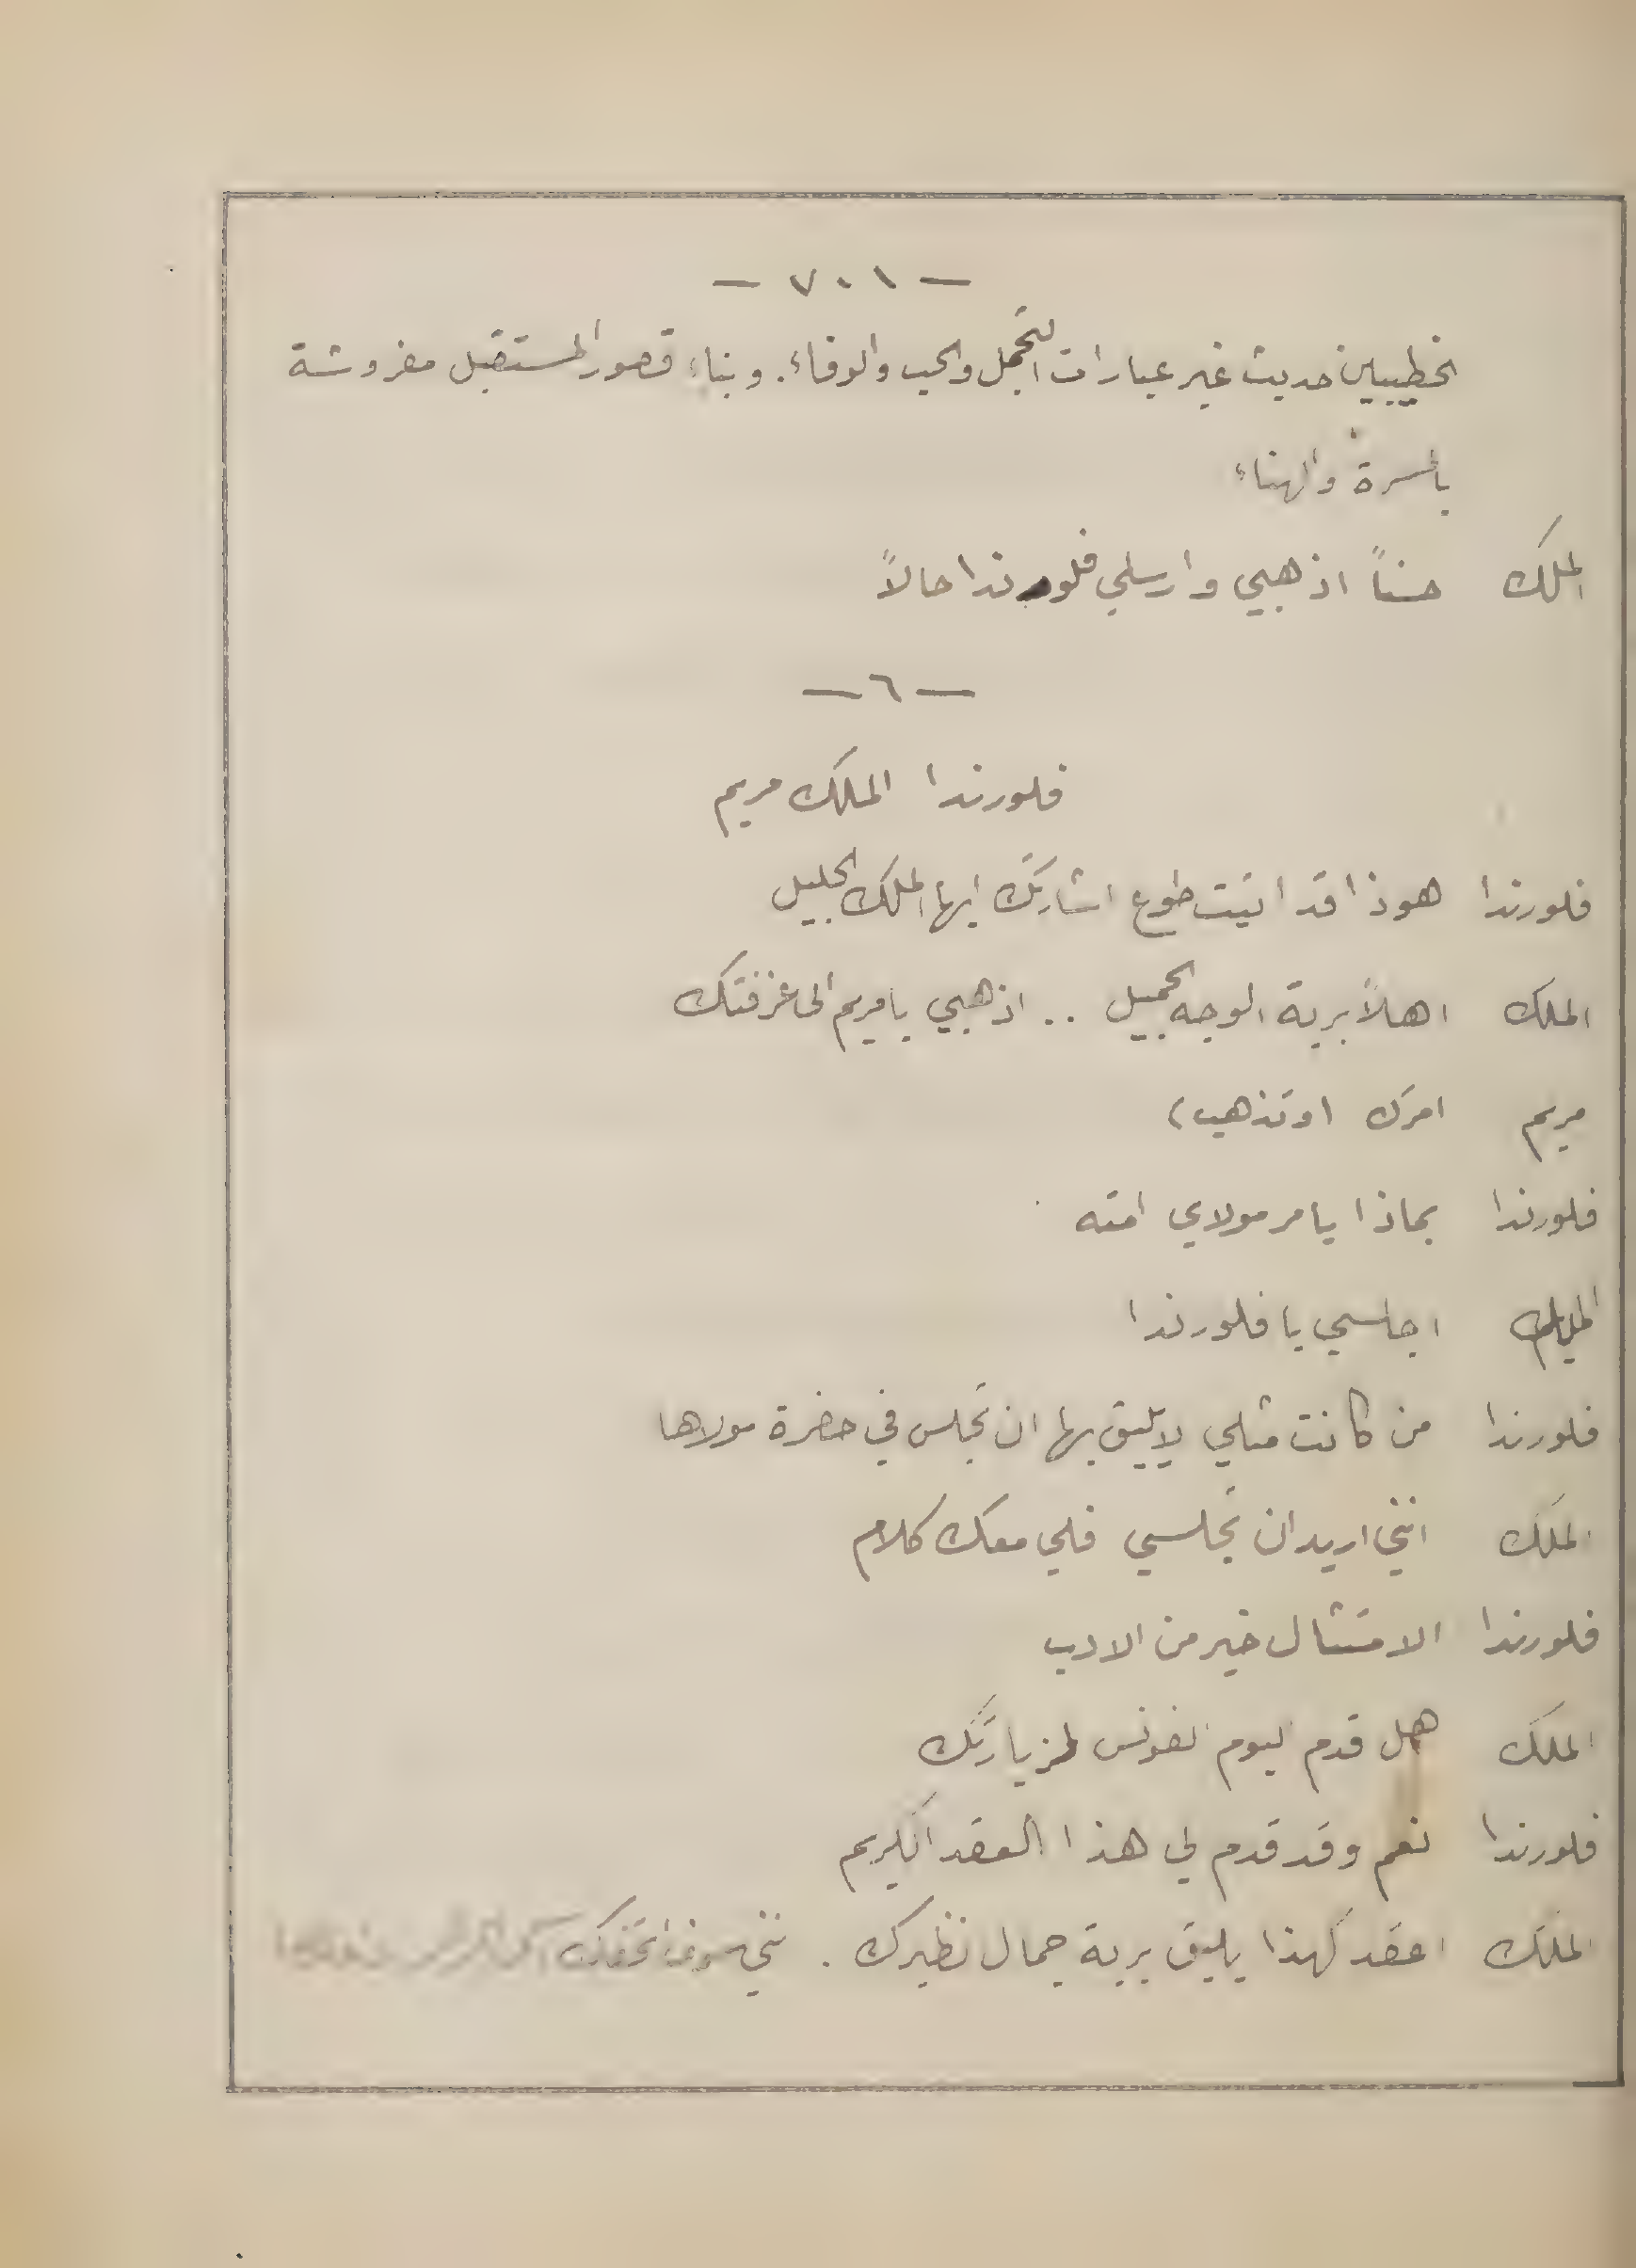 — ٧٠١ —
الخطيبين حديث غير عبارات التجمل والحب والوفاء. وبناء قصور المستقبل مفروشة
بالمسرة والهناء
الملك حسناً اذهبي وارسلي فلورندا حالاً
— ٦ —
فلورندا الملك مريم
فلورندا هوذا قد اتيت طوع اشارتك ايها الملك الجليل
الملك اهلاً بربة الوجه الجميل .. اذهبي يا مريم الى غرفتك
مريم امرك (وتذهب)
فلورندا بماذا يامر مولاي امته
الملك اجلسي يا فلورندا
فلورندا من كانت مثلي لا يليق بها ان تجلس في حضرة مولاها
الملك انني اريد ان تجلسي فلي معك كلام
فلورندا الامتثال خير من الادب
الملك هل قدم اليوم الفونس لزيارتك
فلورندا نعم وقد قدم لي هذا العقد الكريم
الملك اعقد كهذا يليق بربة جمال نظيرك . انني سوف اتحفك